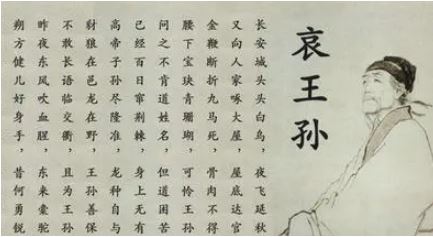 哀王孙
长安城头头白鸟，夜飞延秋
又向人家啄大屋，屋底达官
金鞭断折九马死，骨肉不得
腰下宝玦青珊瑚，可怜王孙
问之不肯道姓名，但道困苦
已经百日窜荆棘，身上无有
高帝子孙尽隆准，龙种自与
豺狼在邑龙在野，王孙善保
不敢长语临交衢，且为王孙
昨夜东风吹血腥，东来橐驼
朔方健儿好身手，昔何勇锐